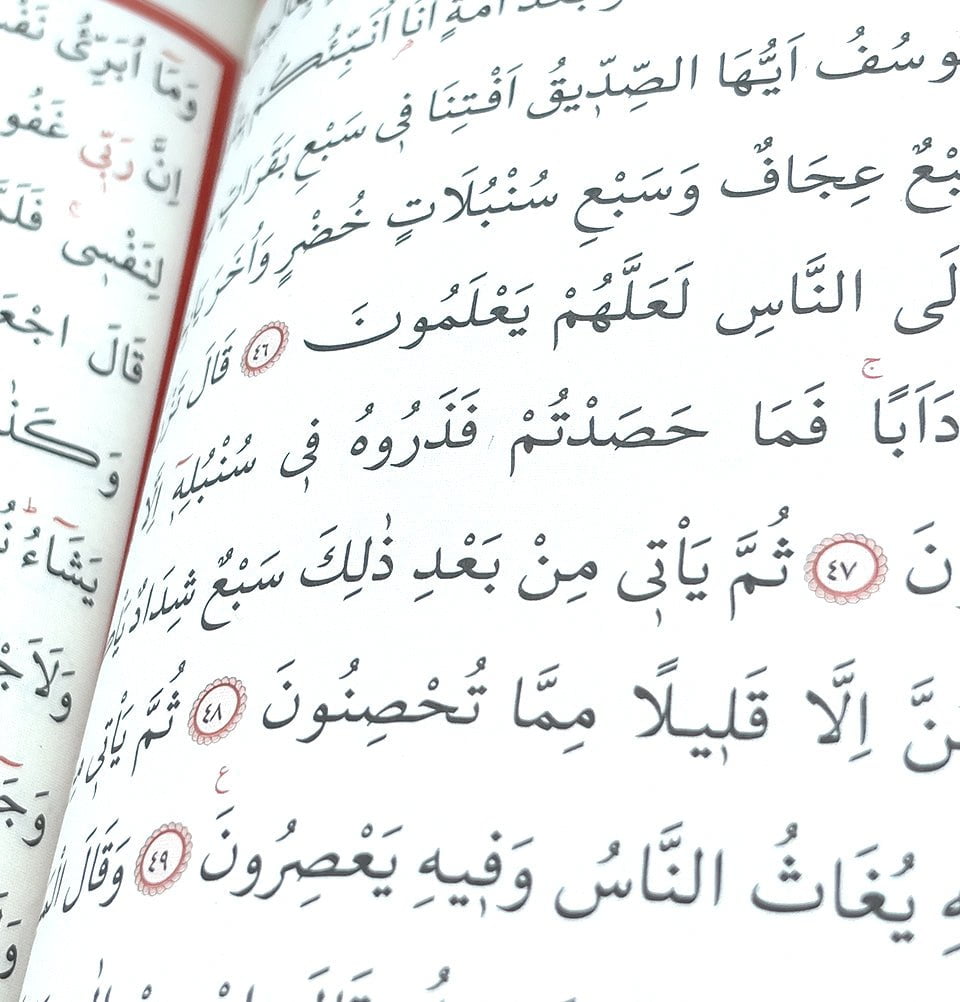 بَعْدَ اُمَّةٍ اَنَا اُنَبِّئُكُمْ
وسُفُ اَيُّهَا الصِّدّٖيقُ اَفْتِنَا فٖى سَبْعِ بَقَرَاتٍ
بْعٌ عِجَافٌ وَسَبْعِ سُنْبُلَاتٍ خُضْرٍ وَاُخَرَ
لَى النَّاسِ لَعَلَّهُمْ يَعْلَمُونَ ٤٦ قَالَ
دَاَبًاۚ فَمَا حَصَدْتُمْ فَذَرُوهُ فٖى سُنْبُلِهٖٓ اِلَّا
نَ ٤٧ ثُمَّ يَاْتٖى مِنْ بَعْدِ ذٰلِكَ سَبْعٌ شِدَادٌ
نَّ اِلَّا قَلٖيلًا مِمَّا تُحْصِنُونَ ٤٨ ثُمَّ يَاْتٖى
هِ يُغَاثُ النَّاسُ وَفٖيهِ يَعْصِرُونَ ع ٤٩ وَقَالَ
وَمَٓا اُبَرِّئُ
اِنَّ رَبّٖى غَفُو
لِنَفْسٖى فَلَمَّ
قَالَ اجْعَ
وَكَذٰ
يَشَٓاءُ
وَلَاَ
وَجَ